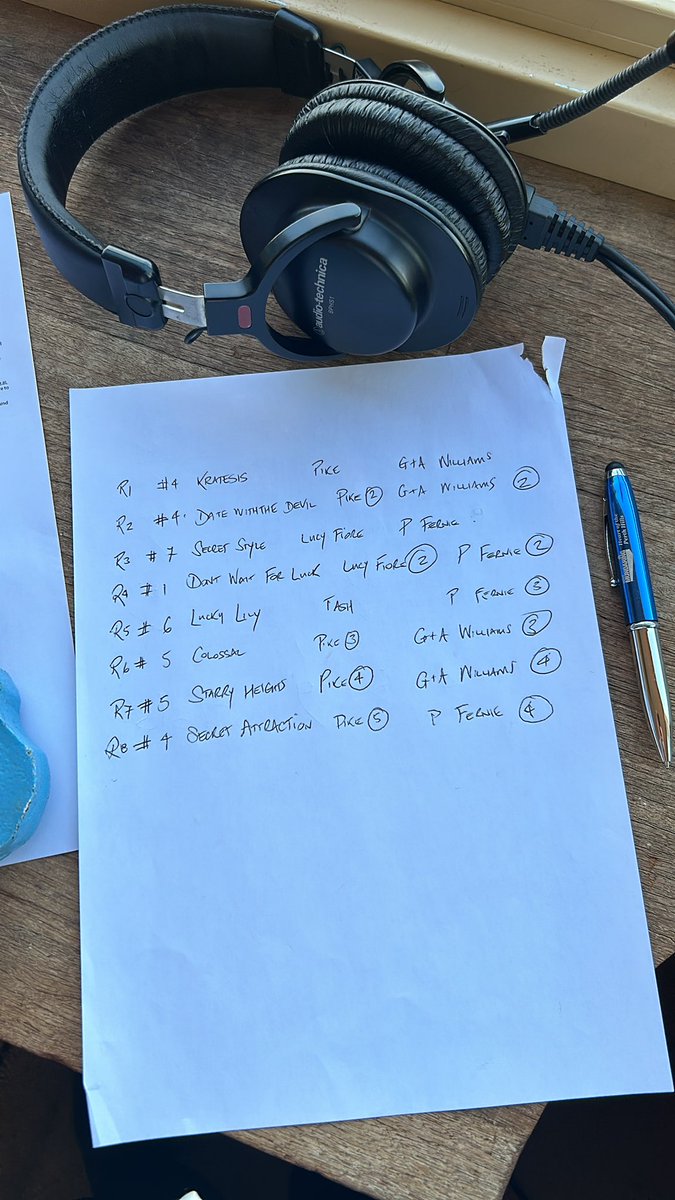 audio-technica
BPHS1
R1 #4 KRATESIS PIKE G+A WILLIAMS
R2 #4. DATE WITH THE DEVIL PIKE ② G+A WILLIAMS ②
R3 #7 SECRET STYLE LUCY FIORE P FERNIE
R4 #1 DONT WAIT FOR LUCK LUCY FIORE ② P FERNIE ②
R5 #6 LUCKY LILY TASH P FERNIE ③
R6 #5 COLOSSAL PIKE ③ G+A WILLIAMS ③
R7 #5 STARRY HEIGHTS PIKE ④ G+A WILLIAMS ④
R8 #4 SECRET ATTRACTION PIKE ⑤ P FERNIE ④